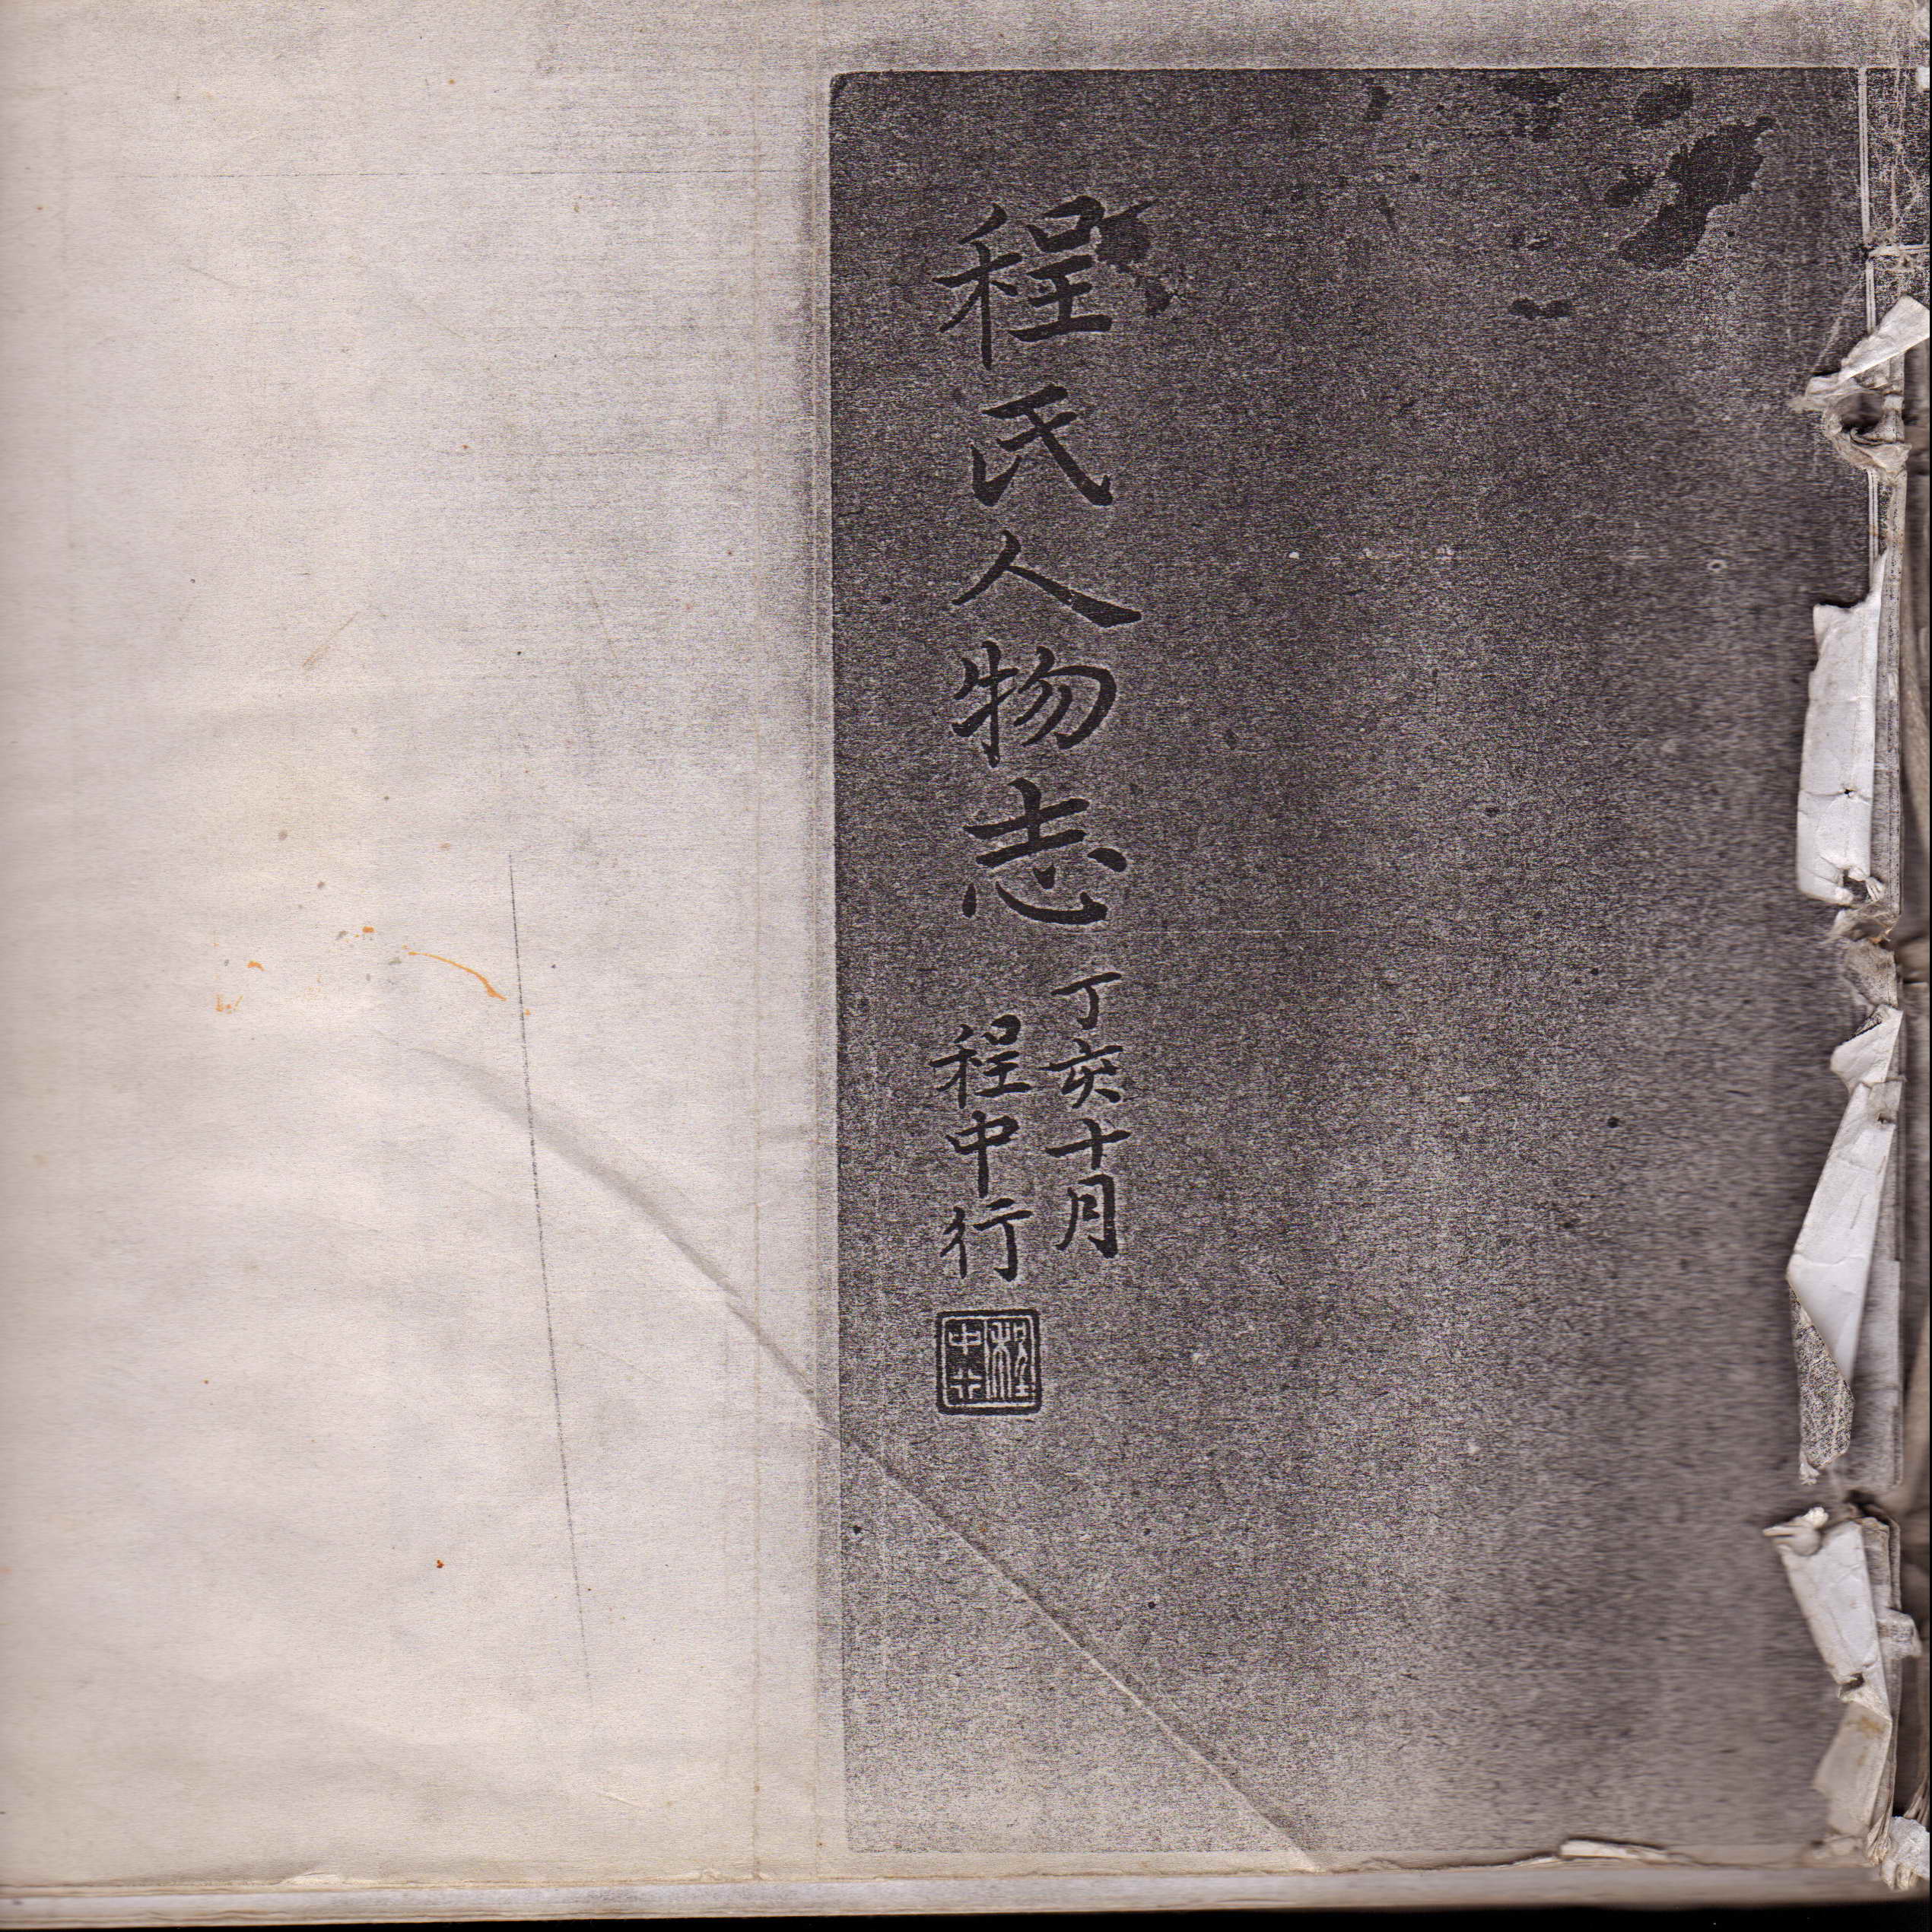 程氏人物志
丁亥十月
程中行
程
中行